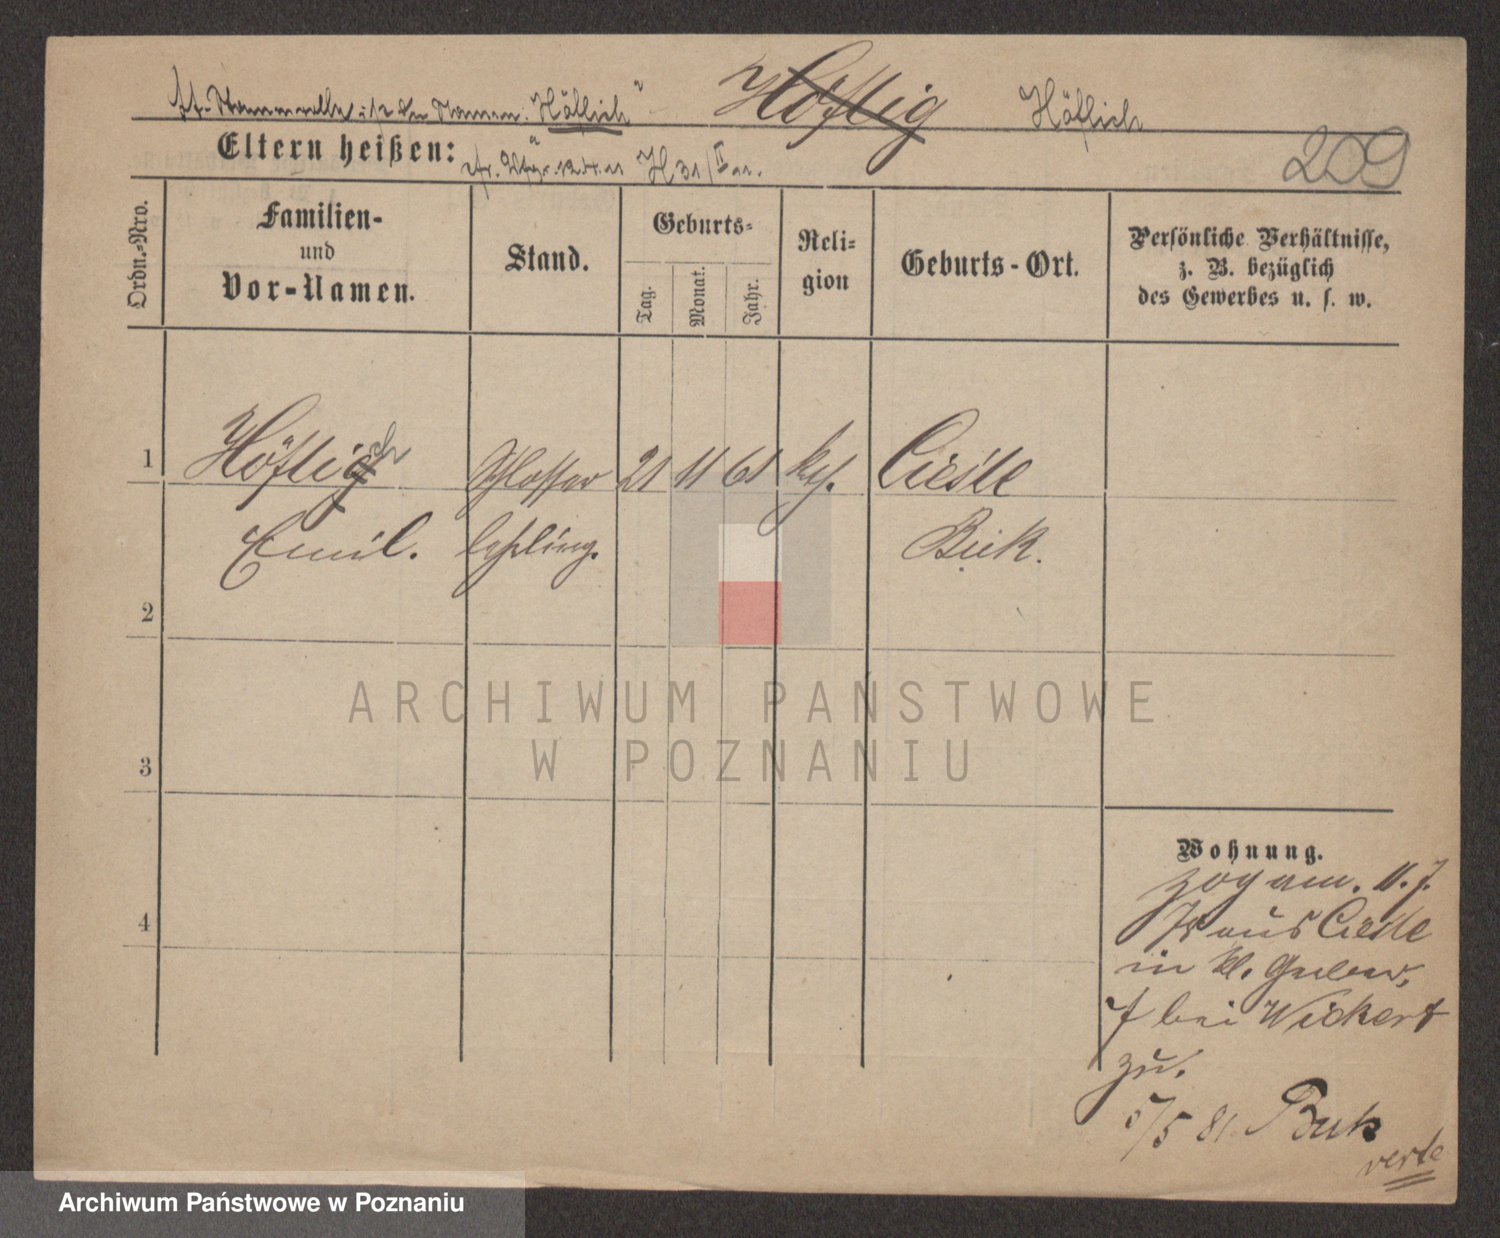 Höflich" Höflig Höflich
Eltern heißen:
H 31/II 91.
209
Ordn.-Nro.
Familien-
und
Vor-Namen.
Stand.
Geburts-
Tag.
Monat.
Jahr.
Reli-
gion
Geburts-Ort.
Persönliche Verhältnisse,
z. B. bezüglich
des Gewerbes u. s. w.
1 Höflich Schlosser 21 11 61 kth. Ciesle
Emil. lehrling. Buk.
2
3
4
ARCHIWUM PAŃSTWOWE
W POZNANIU
Wohnung.
zog am. 11. 7.
aus Ciesle
in kl.
7 bei Wickert
zu.
5/5 81. Buk
verte
Archiwum Państwowe w Poznaniu